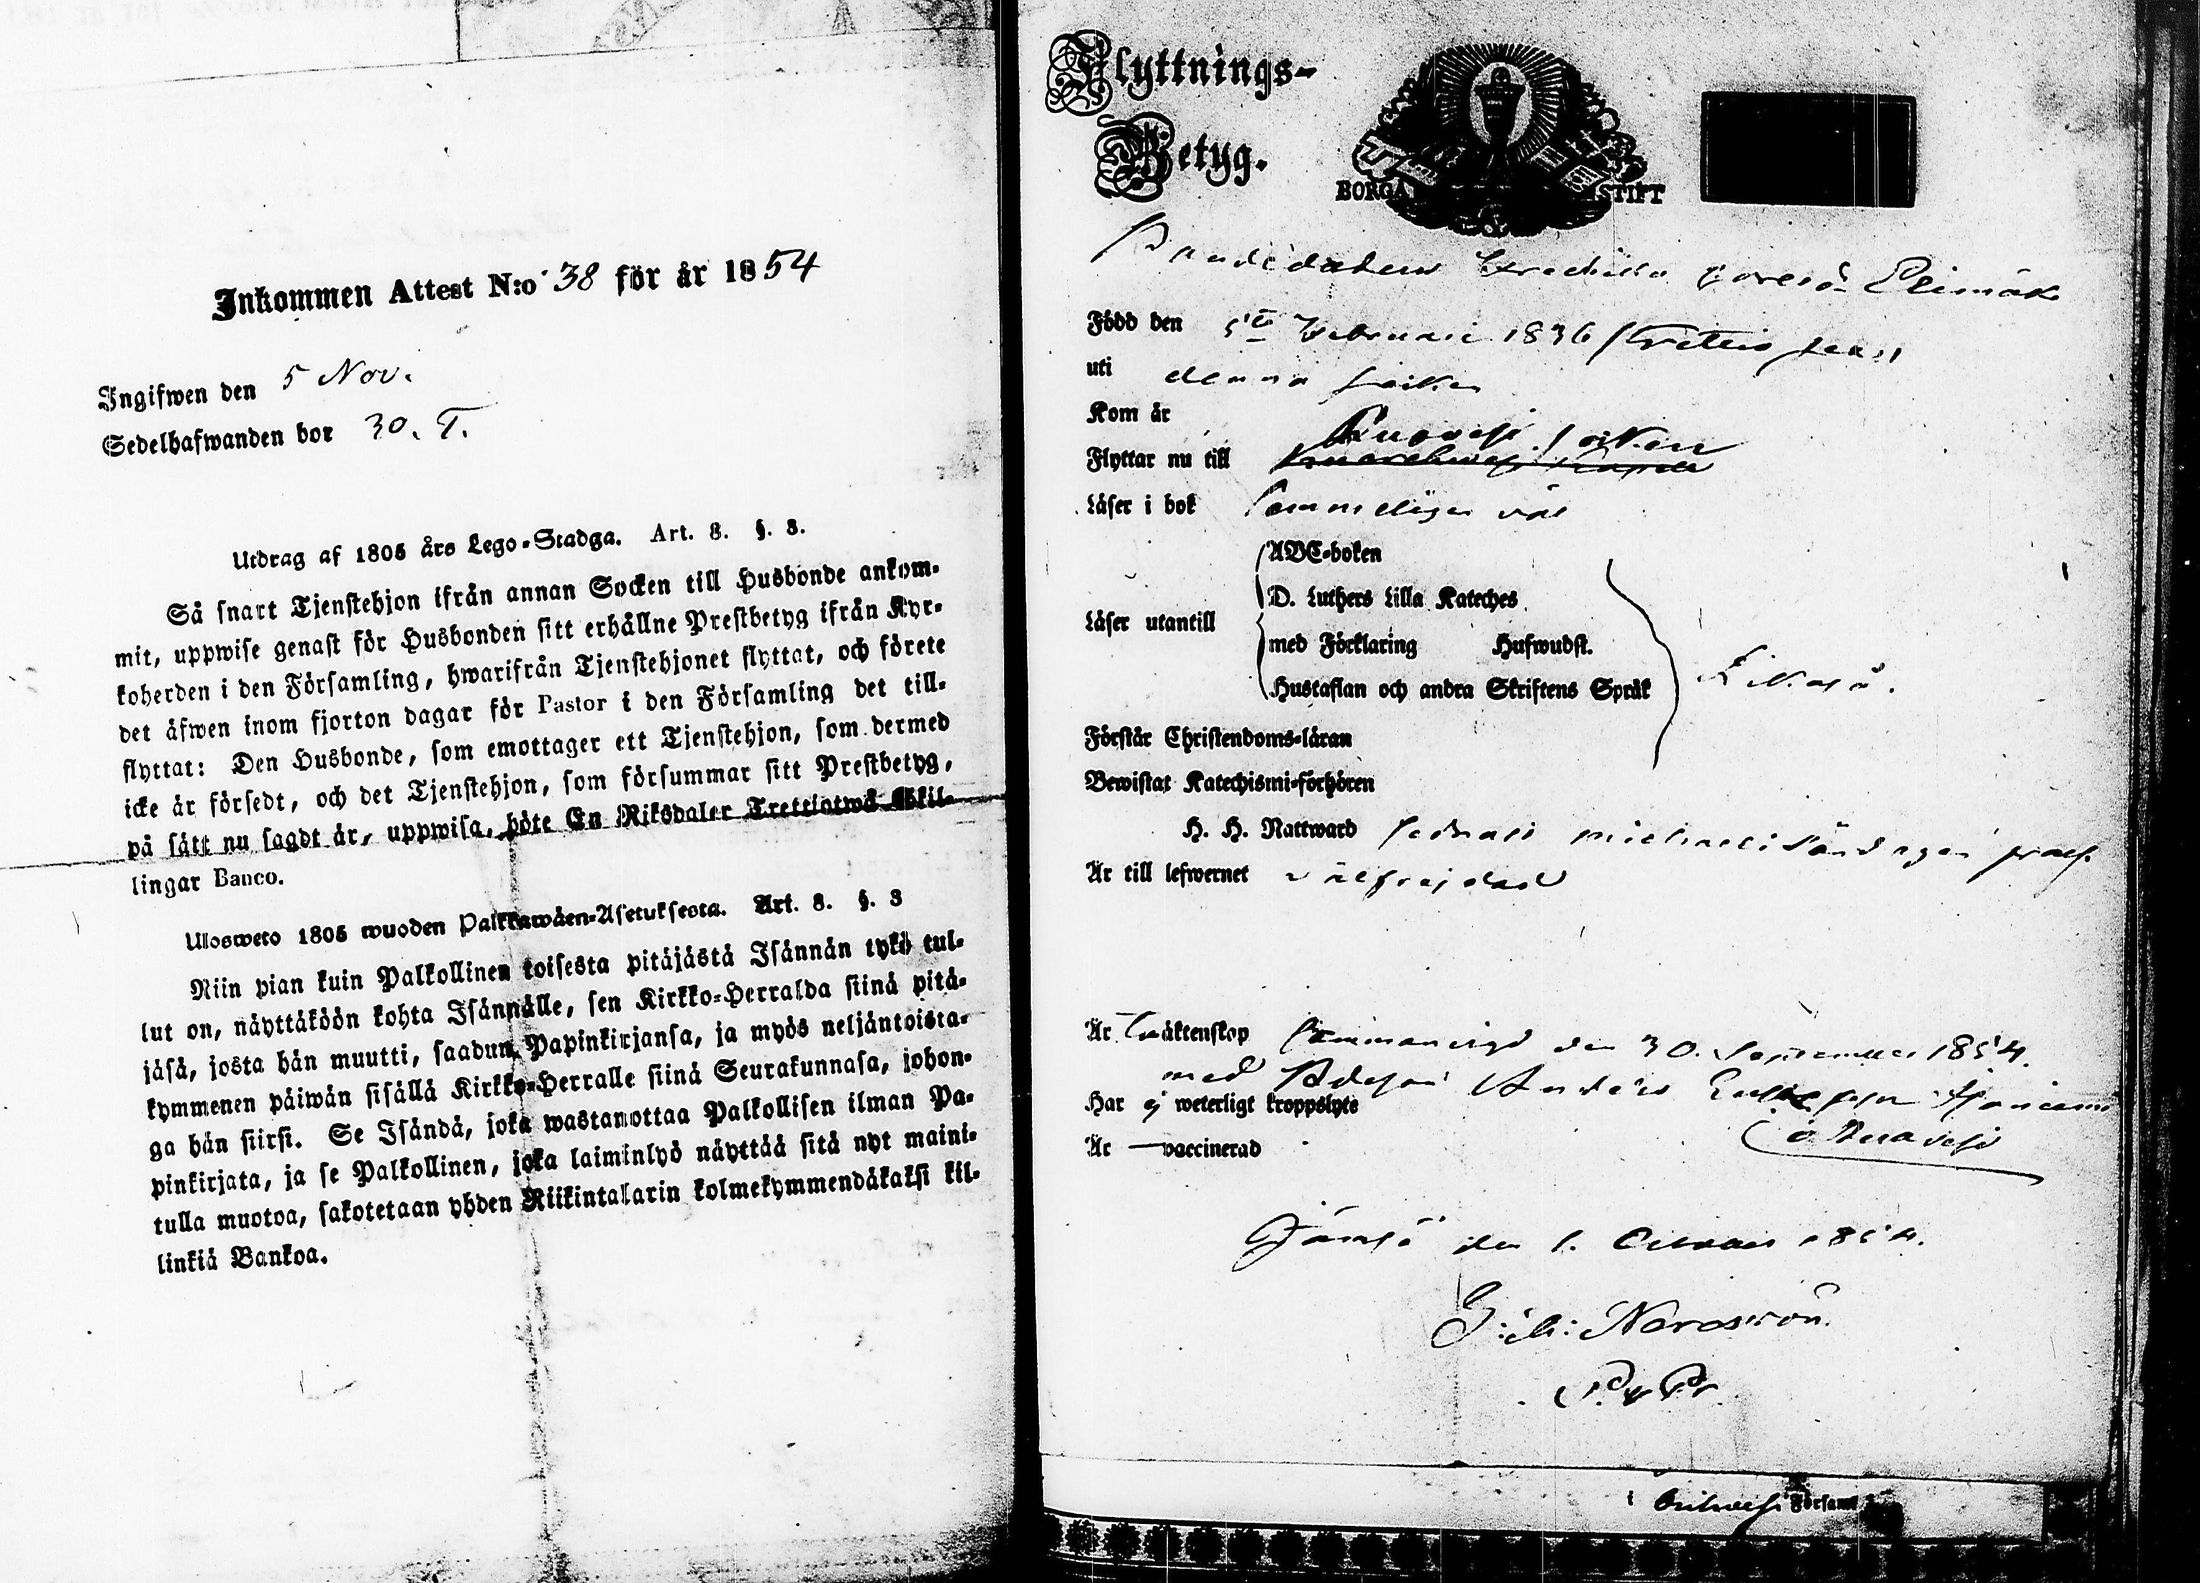 Inkommen Attest N:o 38 för år 1854
Ingifwen den 5 Nov.
Sedelhafwanden bor 30. T.
Utdrag af 1805 års Lego-Stadga. Art. 8. §. 3.
Så snart Tjenstehjon ifrån annan Socken till Husbonde ankom-
mit, uppwise genast för Husbonden sitt erhållne Prestbetyg ifrån Kyr-
koherden i den Församling, hwarifrån Tjenstehjonet flyttat, och förete
det äfwen inom fjorton dagar för Pastor i den Församling det till-
flyttat: Den Husbonde, som emottager ett Tjenstehjon, som dermed
icke är försedt, och det Tjenstehjon, som försummar sitt Prestbetyg,
på sätt nu sagdt är, uppwisa, böte En Riksdaler Trettiotwå Skil-
lingar Banco.
Ulosweto 1805 wuoden Palkkawäen-Asetuksesta. Art. 8. §. 3
Niin pian kuin Palkollinen toisesta pitäjästä Isännän tykö tul-
lut on, näyttäköön kohta Isännälle, sen Kirkko-Herralda siinä pitä-
jäsä, josta hän muutti, saadun Papinkirjansa, ja myös neljäntoista-
kymmenen päiwän sisällä Kirkko-Herralle siinä Seurakunnasa, johon-
ga hän siirsi. Se Isändä, joka wastamottaa Palkollisen ilman Pa-
pinkirjata, ja se Palkollinen, joka laiminlyö näyttää sitä nyt maini-
tulla muotoa, sakotetaan yhden Riikintalarin kolmekymmendäkaksi kil-
linkiä Bankoa.
Flyttnings-
Betyg.
BORGÅ STIFT
Född den 5te Februari 1836
uti denna Socken
Kom år
Flyttar nu till Socken
Läser i bok Semmeligen väl
ABC-boken
D. Luthers Lilla Kateches
Läser utantill
med Förklaring Hufwudst.
Hustaflan och andra Skriftens Språk
Likaså.
Förstår Christendoms-läran
Bewistat Katechismi-förhören
H. H. Nattward sednast michaeli Söndagen
Är till lefwernet välfrejdad
Är äktenskap Sammanvigd den 30. September 1854.
med Anders
Har ej weterligt kroppslyte
Är — vaccinerad
Jämsä den 1. October 1854.
i Församl.